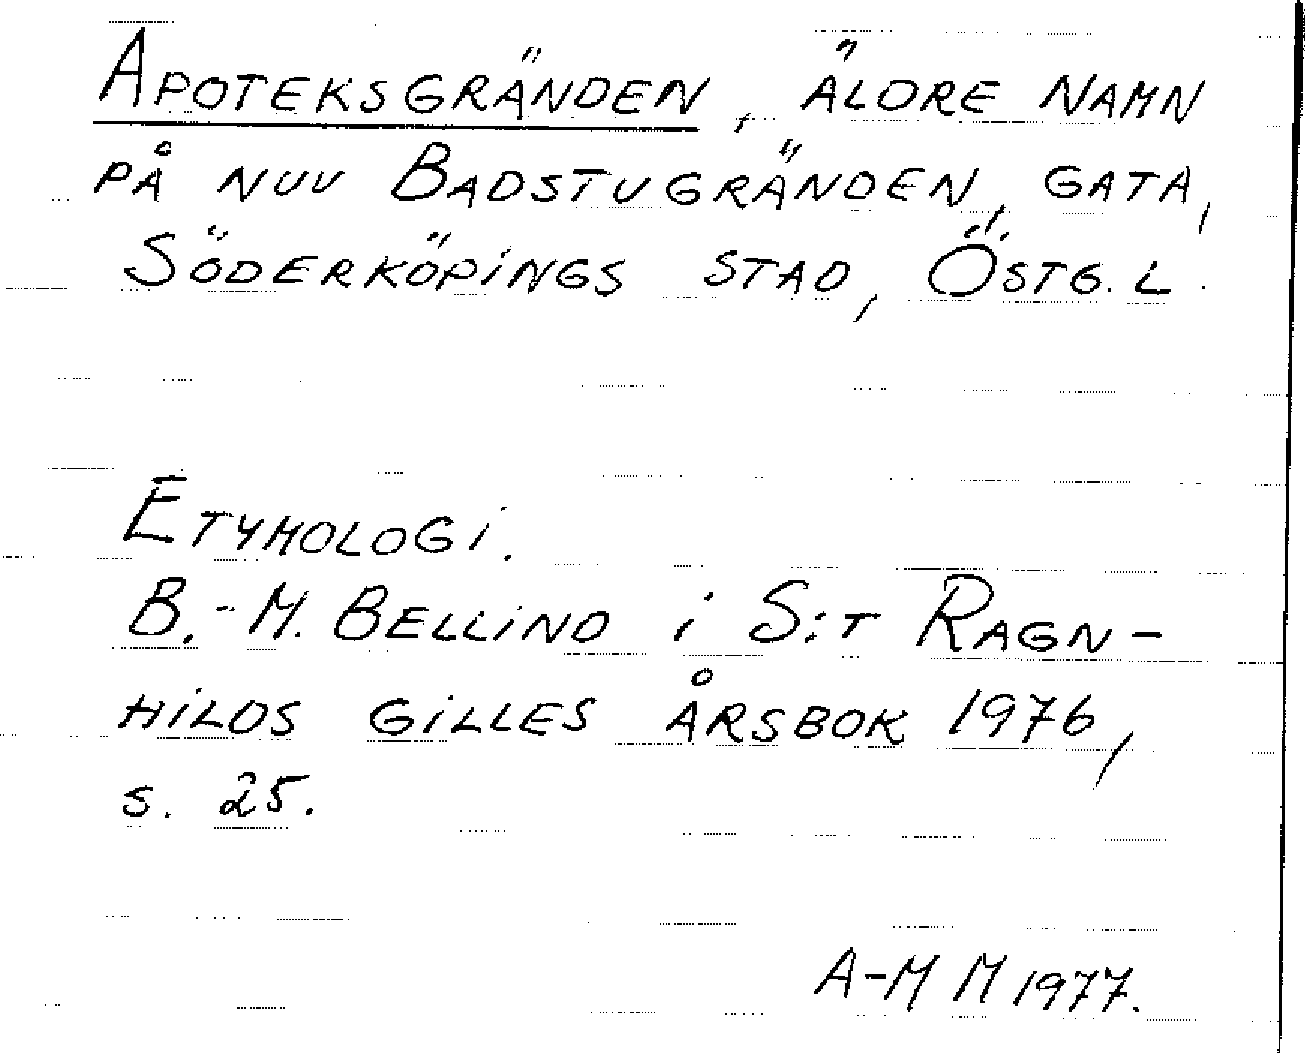 Apoteksgränden, äldre namn
på nuv Badstugränden, gata,
Söderköpings stad, Östg. l.
Etymologi.
B.-M. Bellind i S:t Ragn-
hilds gilles årsbok 1976,
s. 25.
A-M M 1977.